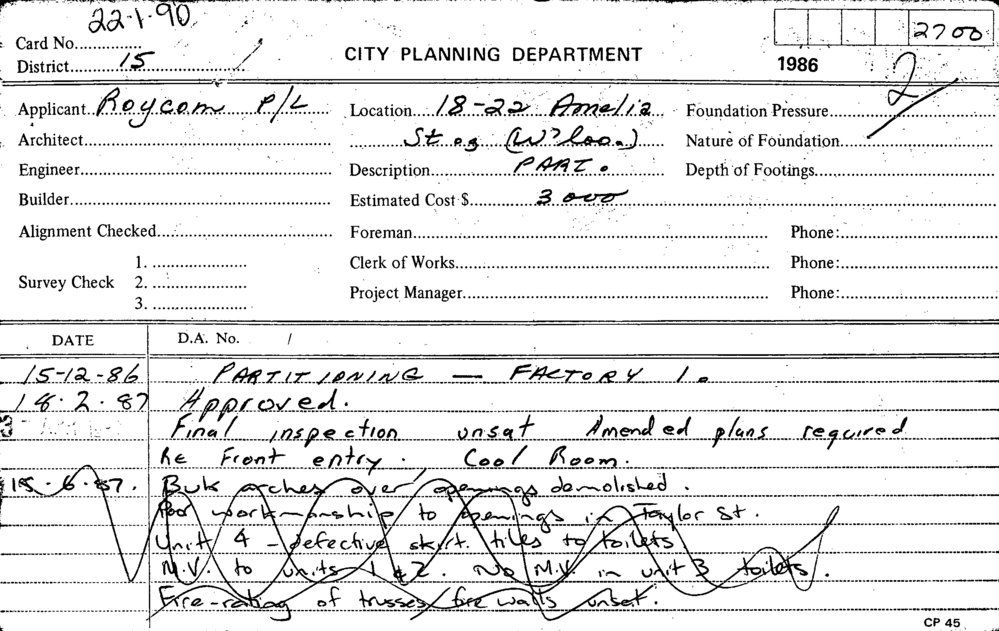 22.1.90
Card No.
District 15
CITY PLANNING DEPARTMENT
2700
1986
2
Applicant Roycom P/L
Location 18-22 Amelia
St. (W'loo.)
Foundation Pressure
Architect
Nature of Foundation
Engineer
Description PART.
Depth of Footings
Builder
Estimated Cost $ 3000
Alignment Checked
Foreman
Phone:
Clerk of Works
Phone:
Survey Check 1.
2.
3.
Project Manager
Phone:
DATE
D.A. No. /
15-12-86 PARTITIONING — FACTORY 1.
18.2.87 Approved.
Final inspection unsat Amended plans required
Re Front entry. Cool Room.
15.6.87. arches over openings demolished.
Poor workmanship to openings in Taylor St.
Unit 4 - defective skirt. tiles to toilets
M.V. to units 1 & 2. No M.V. in unit 3 toilets.
Fire-rating of trusses/fire walls unsat.
CP 45